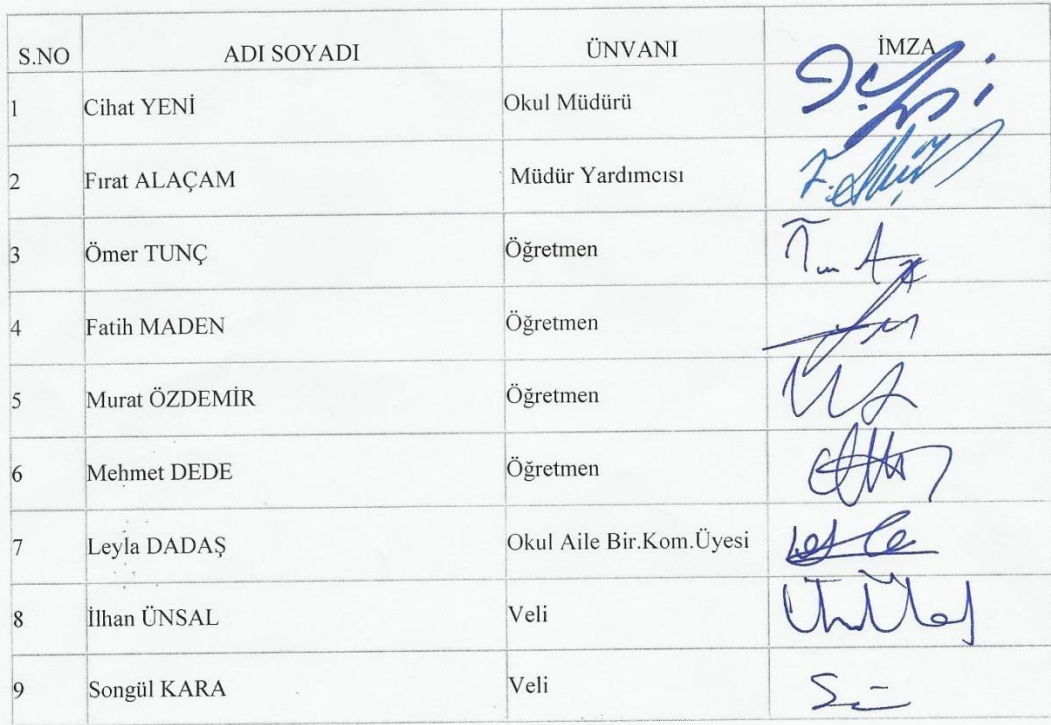 S.NO ADI SOYADI ÜNVANI İMZA
1 Cihat YENİ Okul Müdürü
2 Fırat ALAÇAM Müdür Yardımcısı
3 Ömer TUNÇ Öğretmen
4 Fatih MADEN Öğretmen
5 Murat ÖZDEMİR Öğretmen
6 Mehmet DEDE Öğretmen
7 Leyla DADAŞ Okul Aile Bir.Kom.Üyesi
8 İlhan ÜNSAL Veli
9 Songül KARA Veli